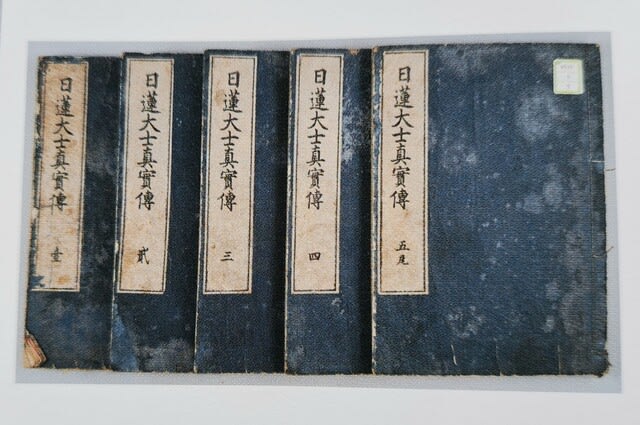 日蓮大士真實傳 壹
日蓮大士真實傳 貳
日蓮大士真實傳 三
日蓮大士真實傳 四
日蓮大士真實傳 五尾